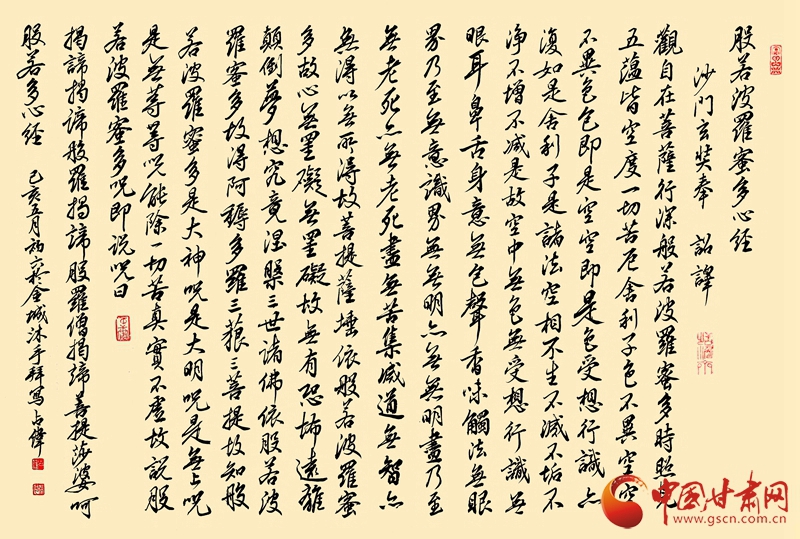 般若波羅蜜多心経
沙门玄奘奉 詔譯
觀自在菩薩行深般若波羅蜜多時照見
五蕴皆空度一切苦厄舍利子色不異空空
不異色色即是空空即是色受想行識亦
復如是舍利子是諸法空相不生不滅不垢不
浄不增不减是故空中無色無受想行識無
眼耳鼻舌身意無色聲香味觸法無眼
界乃至無意識界無無明亦無無明盡乃至
無老死亦無老死盡無苦集滅道無智亦
無得以無所得故菩提薩埵依般若波羅蜜
多故心無罣礙無罣礙故無有恐怖遠離
顛倒夢想究竟涅槃三世諸佛依般若波
羅蜜多故得阿耨多羅三藐三菩提故知般
若波羅蜜多是大神咒是大明咒是無上咒
是無等等咒能除一切苦真實不虚故說般
若波羅蜜多咒即说咒曰
揭諦揭諦般羅揭諦般羅僧揭諦菩提莎婆呵
般若多心経
己亥五月初六於金城沐手拜寫占偉
中国甘肃网
www.gscn.com.cn